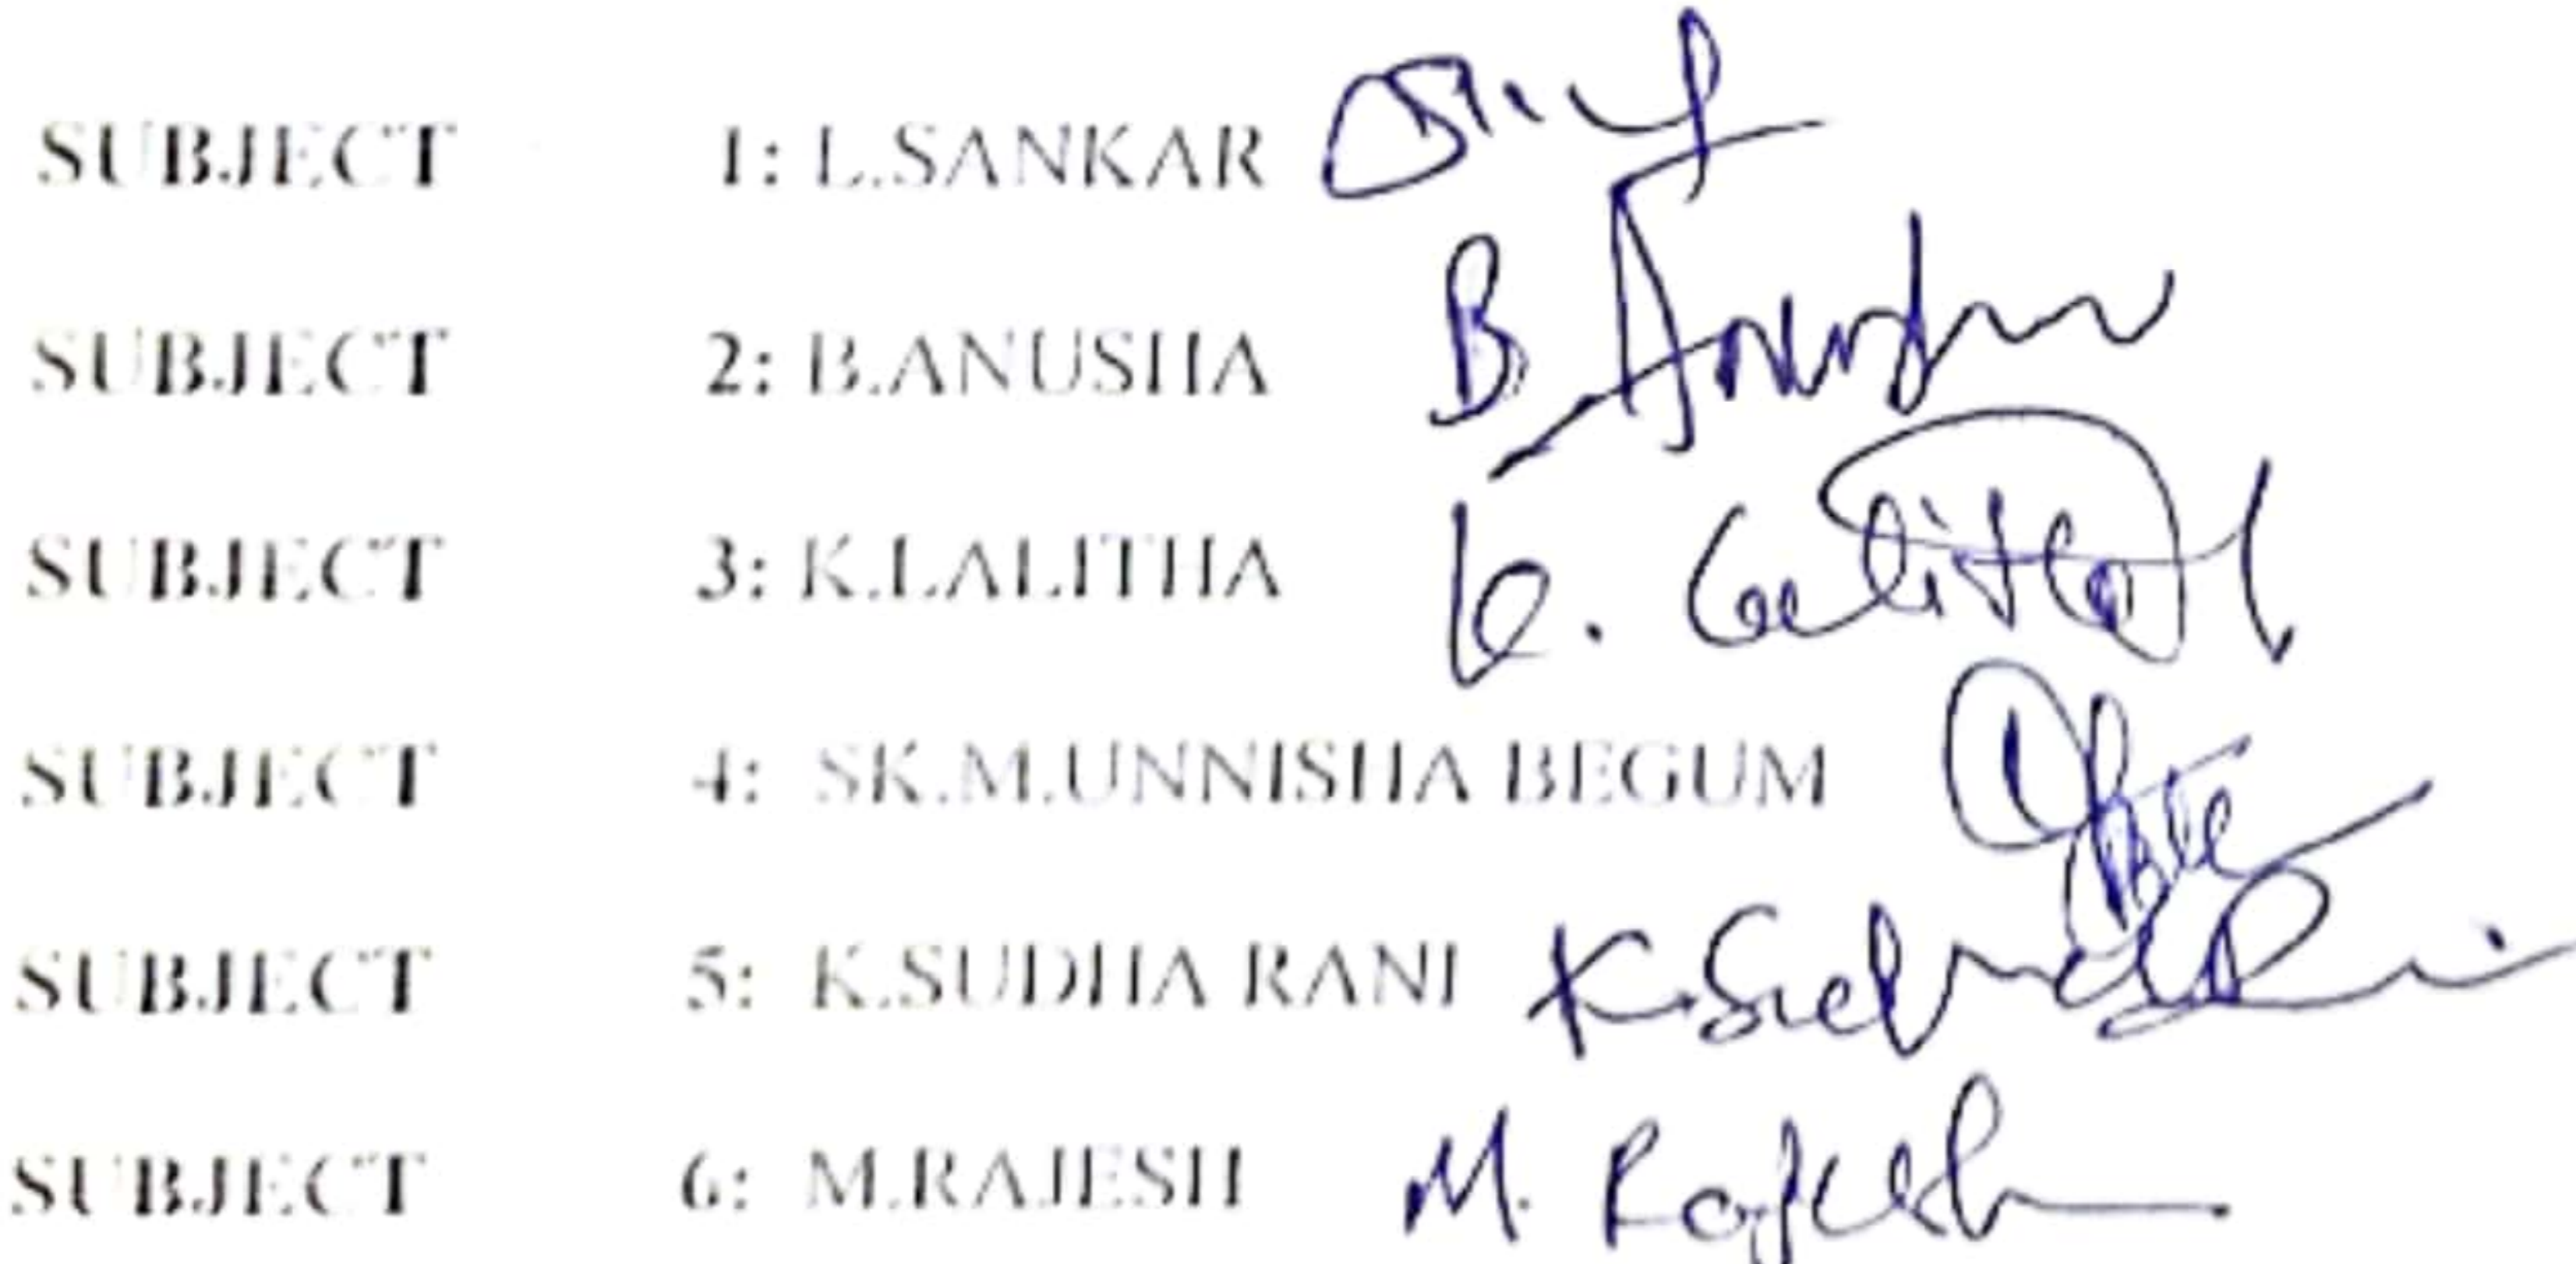 SUBJECT 1: L.SANKAR
SUBJECT 2: B.ANUSHA B. Anusha
SUBJECT 3: K.LALITHA K. Lalitha
SUBJECT 4: SK.M.UNNISHA BEGUM
SUBJECT 5: K.SUDHA RANI K. Sudha Rani
SUBJECT 6: M.RAJESH M. Rajesh